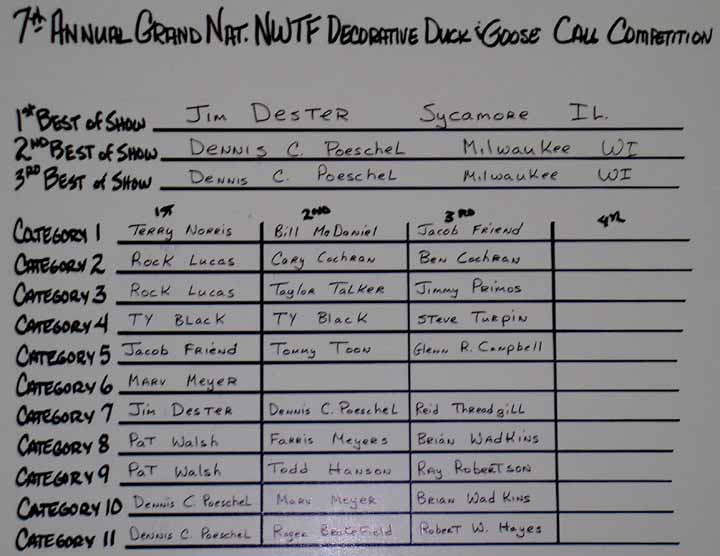 7th Annual Grand Nat. NWTF Decorative Duck & Goose Call Competition
1st Best of Show Jim Dester Sycamore IL.
2nd Best of Show Dennis C. Poeschel Milwaukee WI
3rd Best of Show Dennis C. Poeschel Milwaukee WI
1st 2nd 3rd 4th
Category 1 Terry Norris Bill McDaniel Jacob Friend
Category 2 Rock Lucas Cary Cochran Ben Cochran
Category 3 Rock Lucas Taylor Talker Jimmy Primos
Category 4 Ty Black Ty Black Steve Turpin
Category 5 Jacob Friend Tommy Toon Glenn R. Campbell
Category 6 Marv Meyer
Category 7 Jim Dester Dennis C. Poeschel Reid Threadgill
Category 8 Pat Walsh Farris Meyers Brian Wadkins
Category 9 Pat Walsh Todd Hanson Ray Robertson
Category 10 Dennis C. Poeschel Marv Meyer Brian Wadkins
Category 11 Dennis C. Poeschel Roger Robert W. Hayes